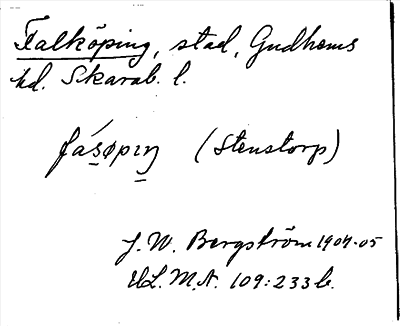 Falköping, stad, Gudhems
hd. Skarab. l.
fá̱søpıŋ (Stenstorp)
J. W. Bergström 1904-05
ULMA. 109:233 b.